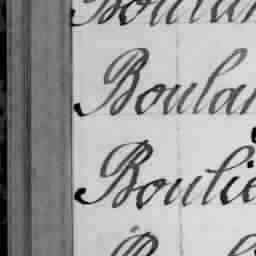 Boulan
Boulan
Boulie